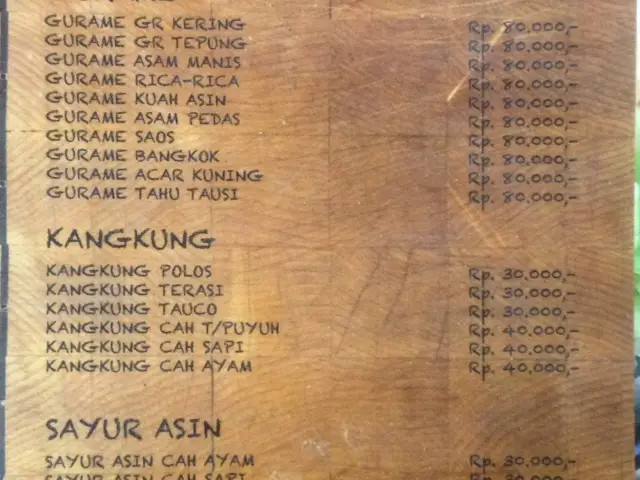 GURAME GR KERING Rp. 80.000,-
GURAME GR TEPUNG Rp. 80.000,-
GURAME ASAM MANIS Rp. 80.000,-
GURAME RICA-RICA Rp. 80.000,-
GURAME KUAH ASIN Rp. 80.000,-
GURAME ASAM PEDAS Rp. 80.000,-
GURAME SAOS Rp. 80.000,-
GURAME BANGKOK Rp. 80.000,-
GURAME ACAR KUNING Rp. 80.000,-
GURAME TAHU TAUSI Rp. 80.000,-
KANGKUNG
KANGKUNG POLOS Rp. 30.000,-
KANGKUNG TERASI Rp. 30.000,-
KANGKUNG TAUCO Rp. 30.000,-
KANGKUNG CAH T/PUYUH Rp. 40.000,-
KANGKUNG CAH SAPI Rp. 40.000,-
KANGKUNG CAH AYAM Rp. 40.000,-
SAYUR ASIN
SAYUR ASIN CAH AYAM Rp. 30.000,-
SAYUR ASIN CAH SAPI